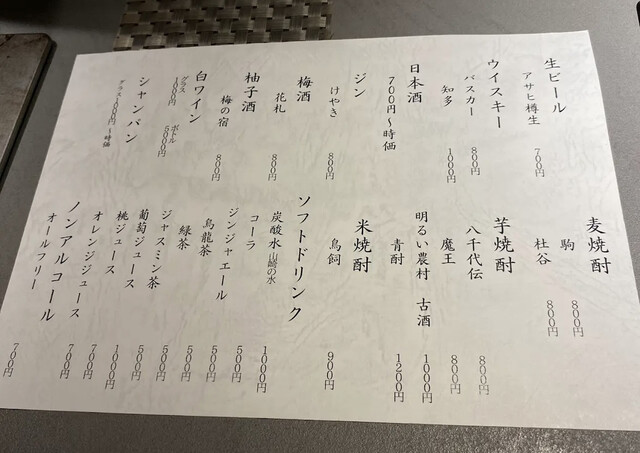 生ビール
アサヒ樽生 700円
ウイスキー
バスカー 800円
知多 1000円
日本酒
700円〜時価
ジン
けやき 800円
梅酒
花札 800円
柚子酒
梅の宿 800円
白ワイン
グラス 1000円 ボトル 5000円
シャンパン
グラス1000円 〜時価
麦焼酎
駒 800円
杜谷 800円
芋焼酎
八千代伝 800円
魔王 800円
明るい農村 古酒 1000円
青酎 1200円
米焼酎
鳥飼 900円
ソフトドリンク
炭酸水 山崎の水 1000円
コーラ 500円
ジンジャエール 500円
烏龍茶 500円
緑茶 500円
ジャスミン茶 500円
葡萄ジュース 1000円
桃ジュース 700円
オレンジジュース 700円
ノンアルコール
オールフリー 700円